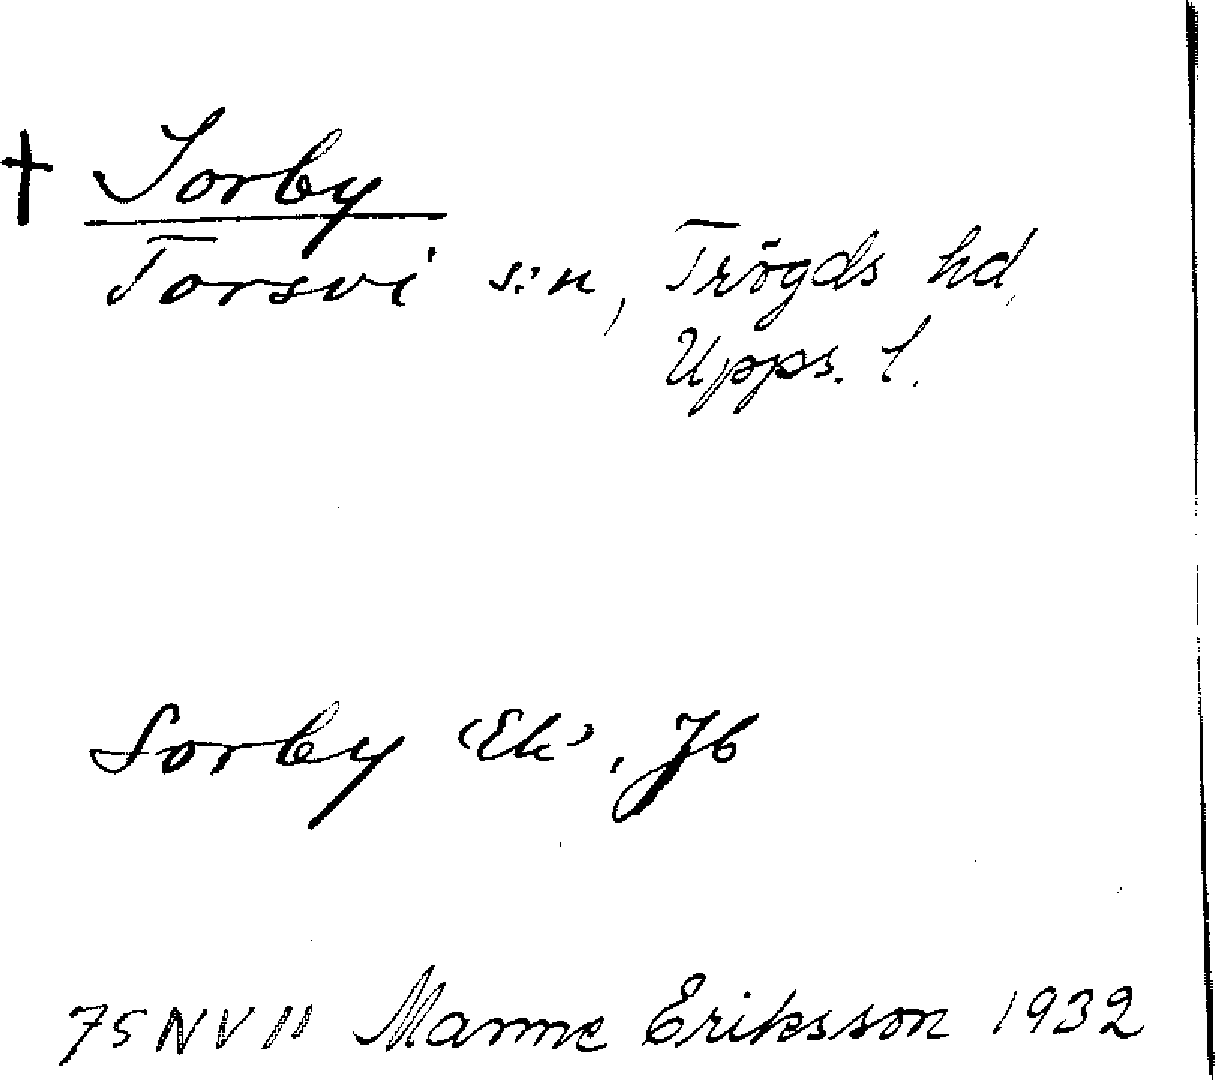 † Sorby
Torsvi s:n, Trögds hd,
Upps. l.
Sorby (Ek), Jb
75 NV 11 Manne Eriksson 1932